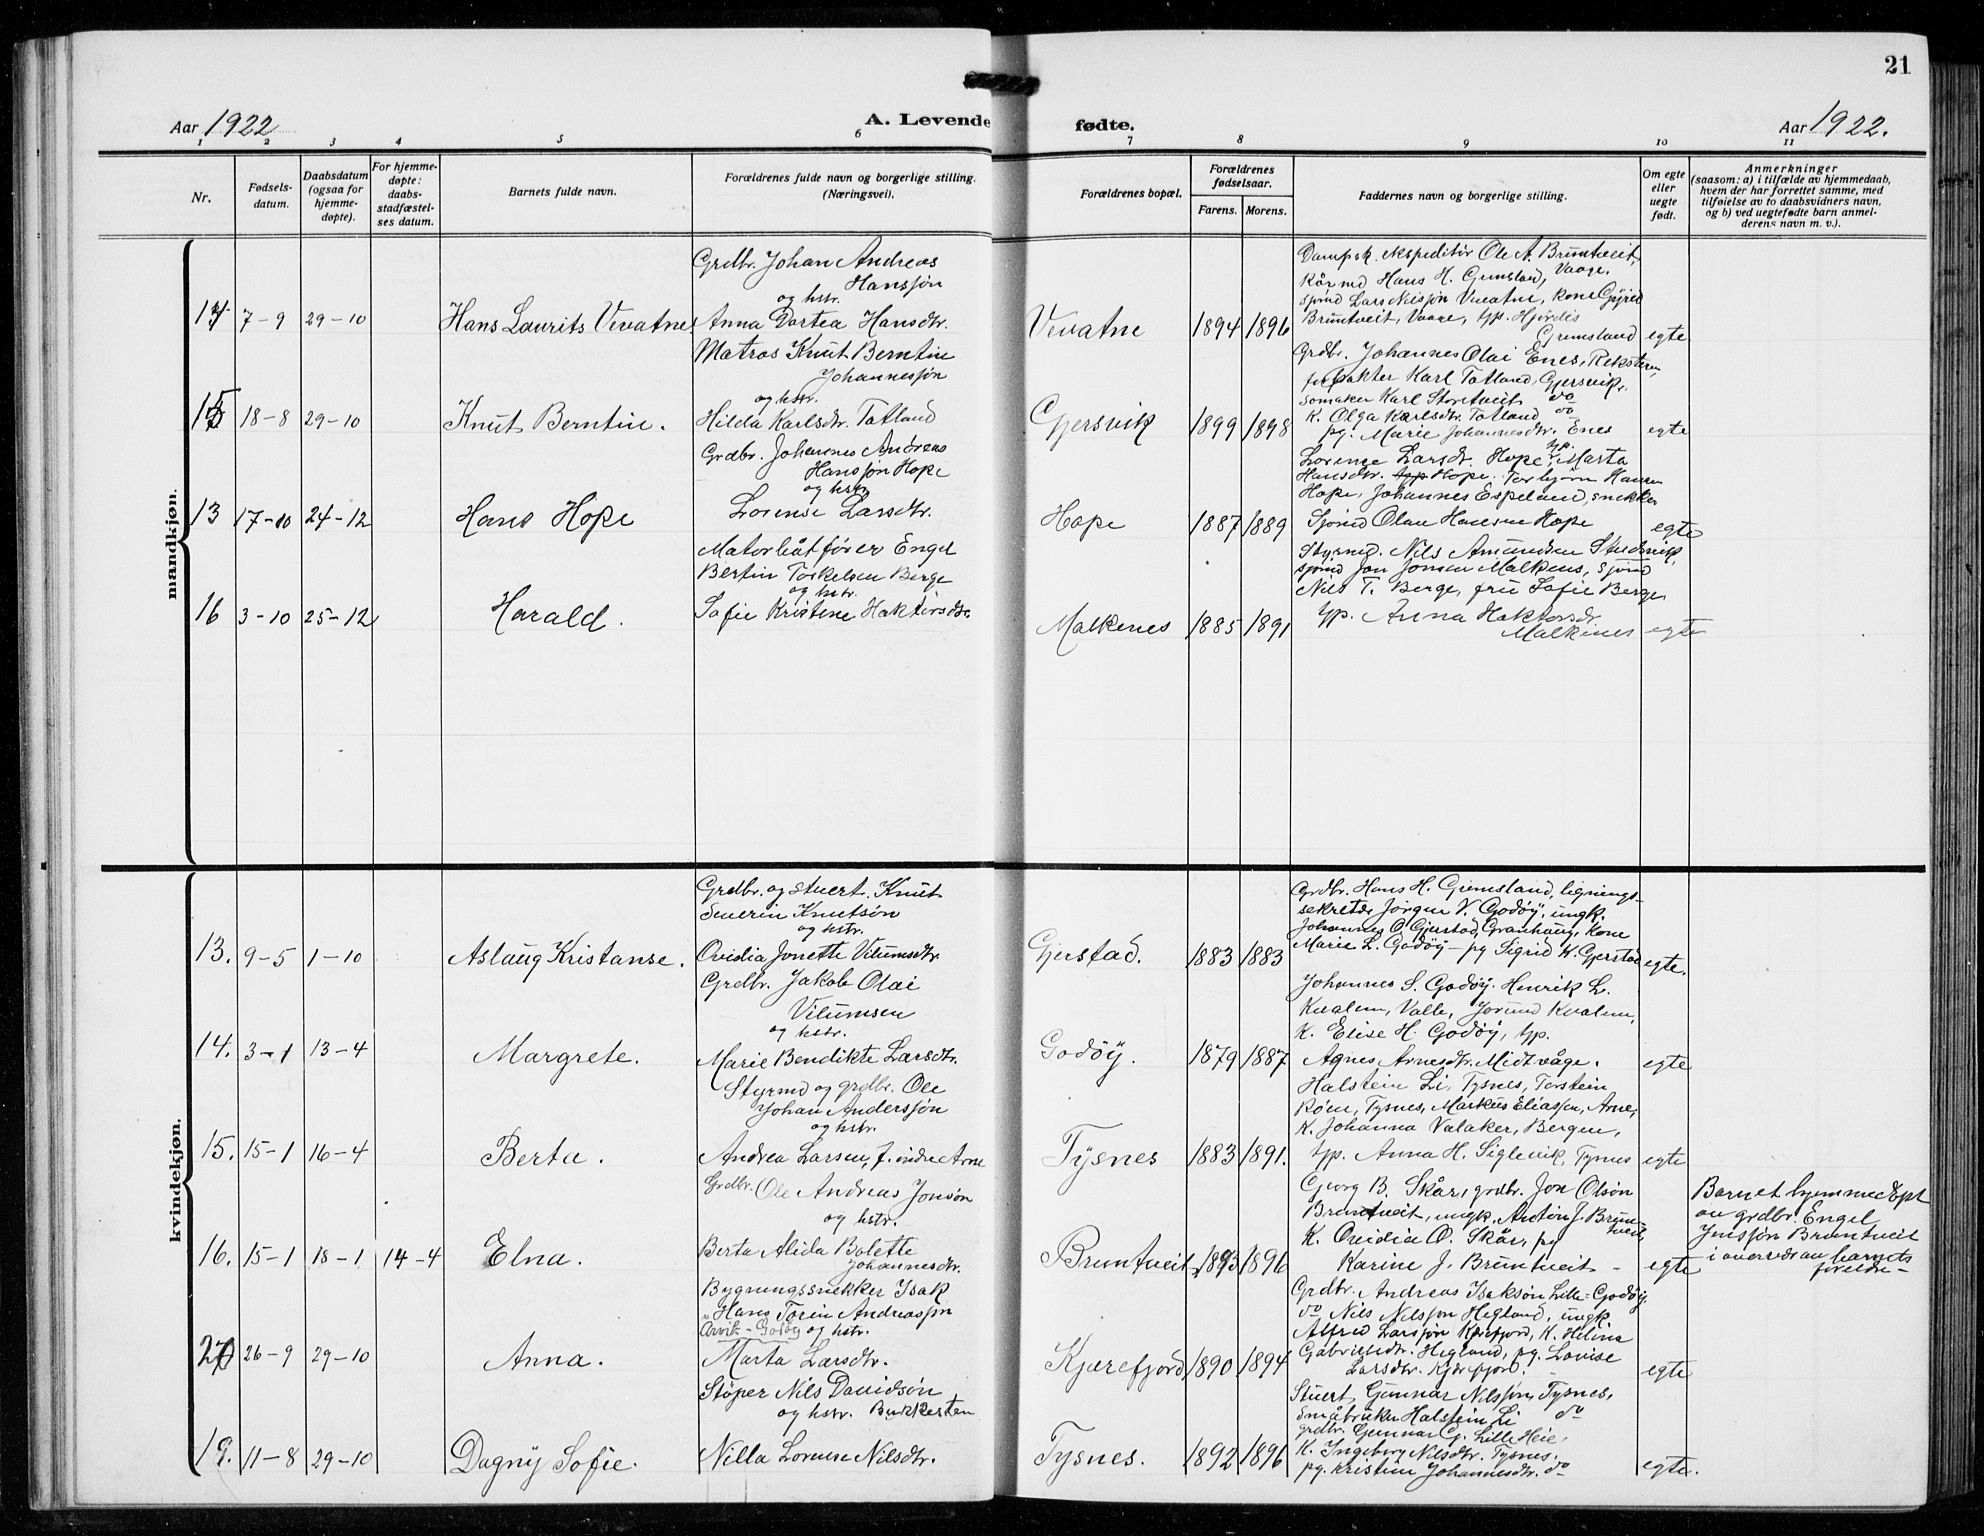 21
Aar 1922
A. Levende fødte.
Aar 1922.
1 2 3 4 5 6 7 8 9 10 11
Nr.
Fødsels-
datum.
Daabsdatum
(ogsaa for
hjemme-
døpte).
For hjemme-
døpte:
daabs-
stadfæstel-
ses datum.
Barnets fulde navn.
Forældrenes fulde navn og borgerlige stilling.
(Næringsvei).
Forældrenes bopæl.
Forældrenes
fødselsaar.
Farens. Morens.
Faddernes navn og borgerlige stilling.
Om egte
eller
uegte
født.
Anmerkninger
(saasom: a) i tilfælde av hjemmedaab,
hvem der har forrettet samme, med
tilføielse av to daabsvidners navn,
og b) ved uegtefødte barn anmel-
derens navn m. v.).
mandkjøn.
14 7-9 29-10 Hans Laurits Vevatne
Grdbr. Johan Andreas
Hansson
og hstr.
Anna Dortea Hansdtr.
Vevatne 1894 1896
Dampsk. ekspeditør Ole A. Bruntveit,
Vaage,
Hans H. Gjemsland,
sjømd Lars Nilsson Vevatne, kone
Bruntveit, Vaage, tjp. Hjørdis
Gjemsland
egte
15 18-8 29-10 Knut Berntin.
Matros Knut Berntin
Johannesson
og hstr.
Hilda Karlsdtr. Totland
Gjersvik 1899 1898
Grdbr. Johannes Olai Enes, Reksteren,
Karl Totland, Gjersvik,
Karl Storetveit do
K. Olga Karlsdtr. Totland do
pg. Marie Johannesdtr. Enes
egte
13 17-10 24-12 Hans Hope
Grdbr. Johannes Andreas
Hansson Hope
og hstr.
Lorense Larsdtr.
Hope 1887 1889
Lorense Larsdtr. Hope, tjp. Marta
Hansdtr. Hope. Torbjørn Hansen
Hope, Johannes Espeland, snekker
Sjømd Olav Hansen Hope
egte
16 3-10 25-12 Harald.
Motorbåtfører Engel
Bertin Torkelsen Berge
og hstr.
Sofie Kristene Haktorsdtr.
Malkenes 1885 1891
Styrmd. Nils Amundsen
sjømd Jon Jonsen Malkenes, sjømd
Nils T. Berge, fru Sofie Berge,
tjp. Anna Haktorsdr.
Malkenes
egte
kvindekjøn.
13. 9-5 1-10 Aslaug Kristanse.
Grdbr. og stuert Knut
Severin Knutsøn
og hstr.
Ovidia Jonette Vilumsdtr.
Gjerstad. 1883 1883
Grdbr. Hans H. Gjemsland, lignings-
sekretær Jørgen V. Godøy, ungk.
Johannes O. Gjerstad, Granhaug, Kone
Marie L. Godøy - pg Sigrid K. Gjerstad
egte.
14. 3-1 13-4 Margrete.
Grdbr. Jakob Olai
Vilumsen
og hstr.
Marie Bendikte Larsdtr.
Godøy. 1879 1887
Johannes S. Godøy. Henrik L.
Kvalem, Valle, Jorund Kvalem,
K. Elise H. Godøy, tjp.
Agnes Arnesdtr. Midtvåge.
egte
15. 15-1 16-4 Berta.
Styrmd og grdbr. Ole
Johan Andersson
og hstr.
Andrea Larsen, f. indre Arne
Tysnes 1883 1891.
Halstein Li, Tysnes, Torstein
Røen, Tysnes, Markus Eliassen, Arne,
K. Johanna Valaker, Bergen,
tjp. Anna H. Siglevik, Tysnes
egte
16. 15-1 18-1 14-4 Elna.
Grdbr. Ole Andreas Jonsøn
og hstr.
Berta Alida Bolette
Johannesdtr.
Bruntveit 1893 1896
Georg B. Skår, grdbr. Jon Olsøn
Bruntveit, ungk. Anton J. Brunt-
tveit,
K. Ovidia O. Skår, pg
Karine J. Bruntveit -
egte
Barnet hjemmedøpt
av grdbr. Engel
Jensson Bruntveit
i overvær av barnets
foreldre-
27 26-9 29-10 Anna.
Bygningssnekker Isak
Hans Torin Andreasson
Arvik - Godøy og hstr.
Marta Larsdtr.
Kjærefjord 1890 1894
Grdbr. Andreas Isaksøn Lille-Godøy,
do Nils Nilsson Hegland, ungk.
Alfred Larsson Kjærfjord, K. Helina
Gabrielsdtr. Hegland, pg. Lovise
Larsdtr. Kjærfjord.
egte
19. 11-8 29-10 Dagny Sofie.
Støper Nils Davidsøn
og hstr. Bukkesten
Nilla Lorense Nilsdtr.
Tysnes. 1892 1896
Stuert Gunnar Nilsson, Tysnes,
Småbruker Halstein Li do
grdbr. Gunnar G. Lille Heie,
K. Ingeborg Nilsdtr. Tysnes.
pg. Kristine Johannesdtr. do
egte.